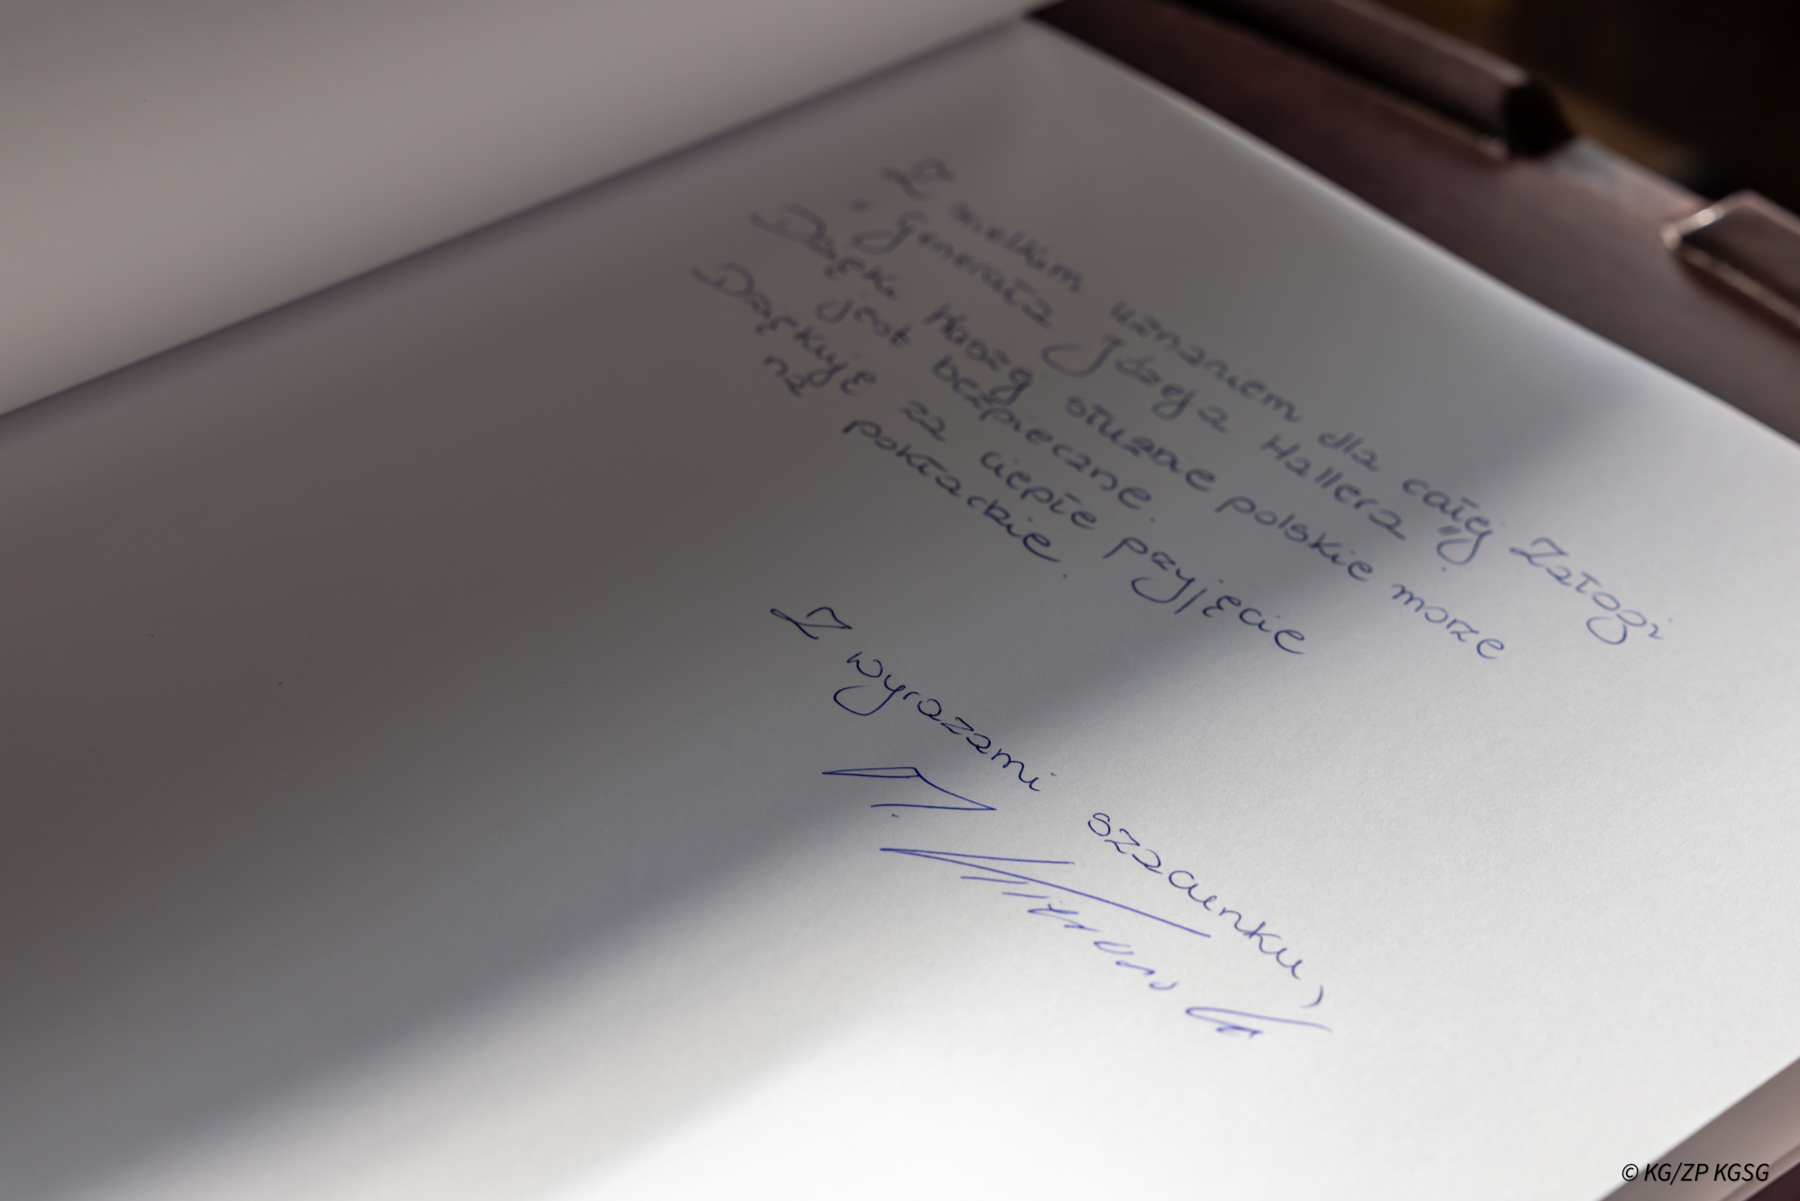 Z wielkim uznaniem dla całej Załogi
"Generała Józefa Hallera".
Dzięki Waszej służbie polskie morze
jest bezpieczne.
Dziękuję za ciepłe przyjęcie
na pokładzie.
Z wyrazami szacunku,
© KG/ZP KGSG